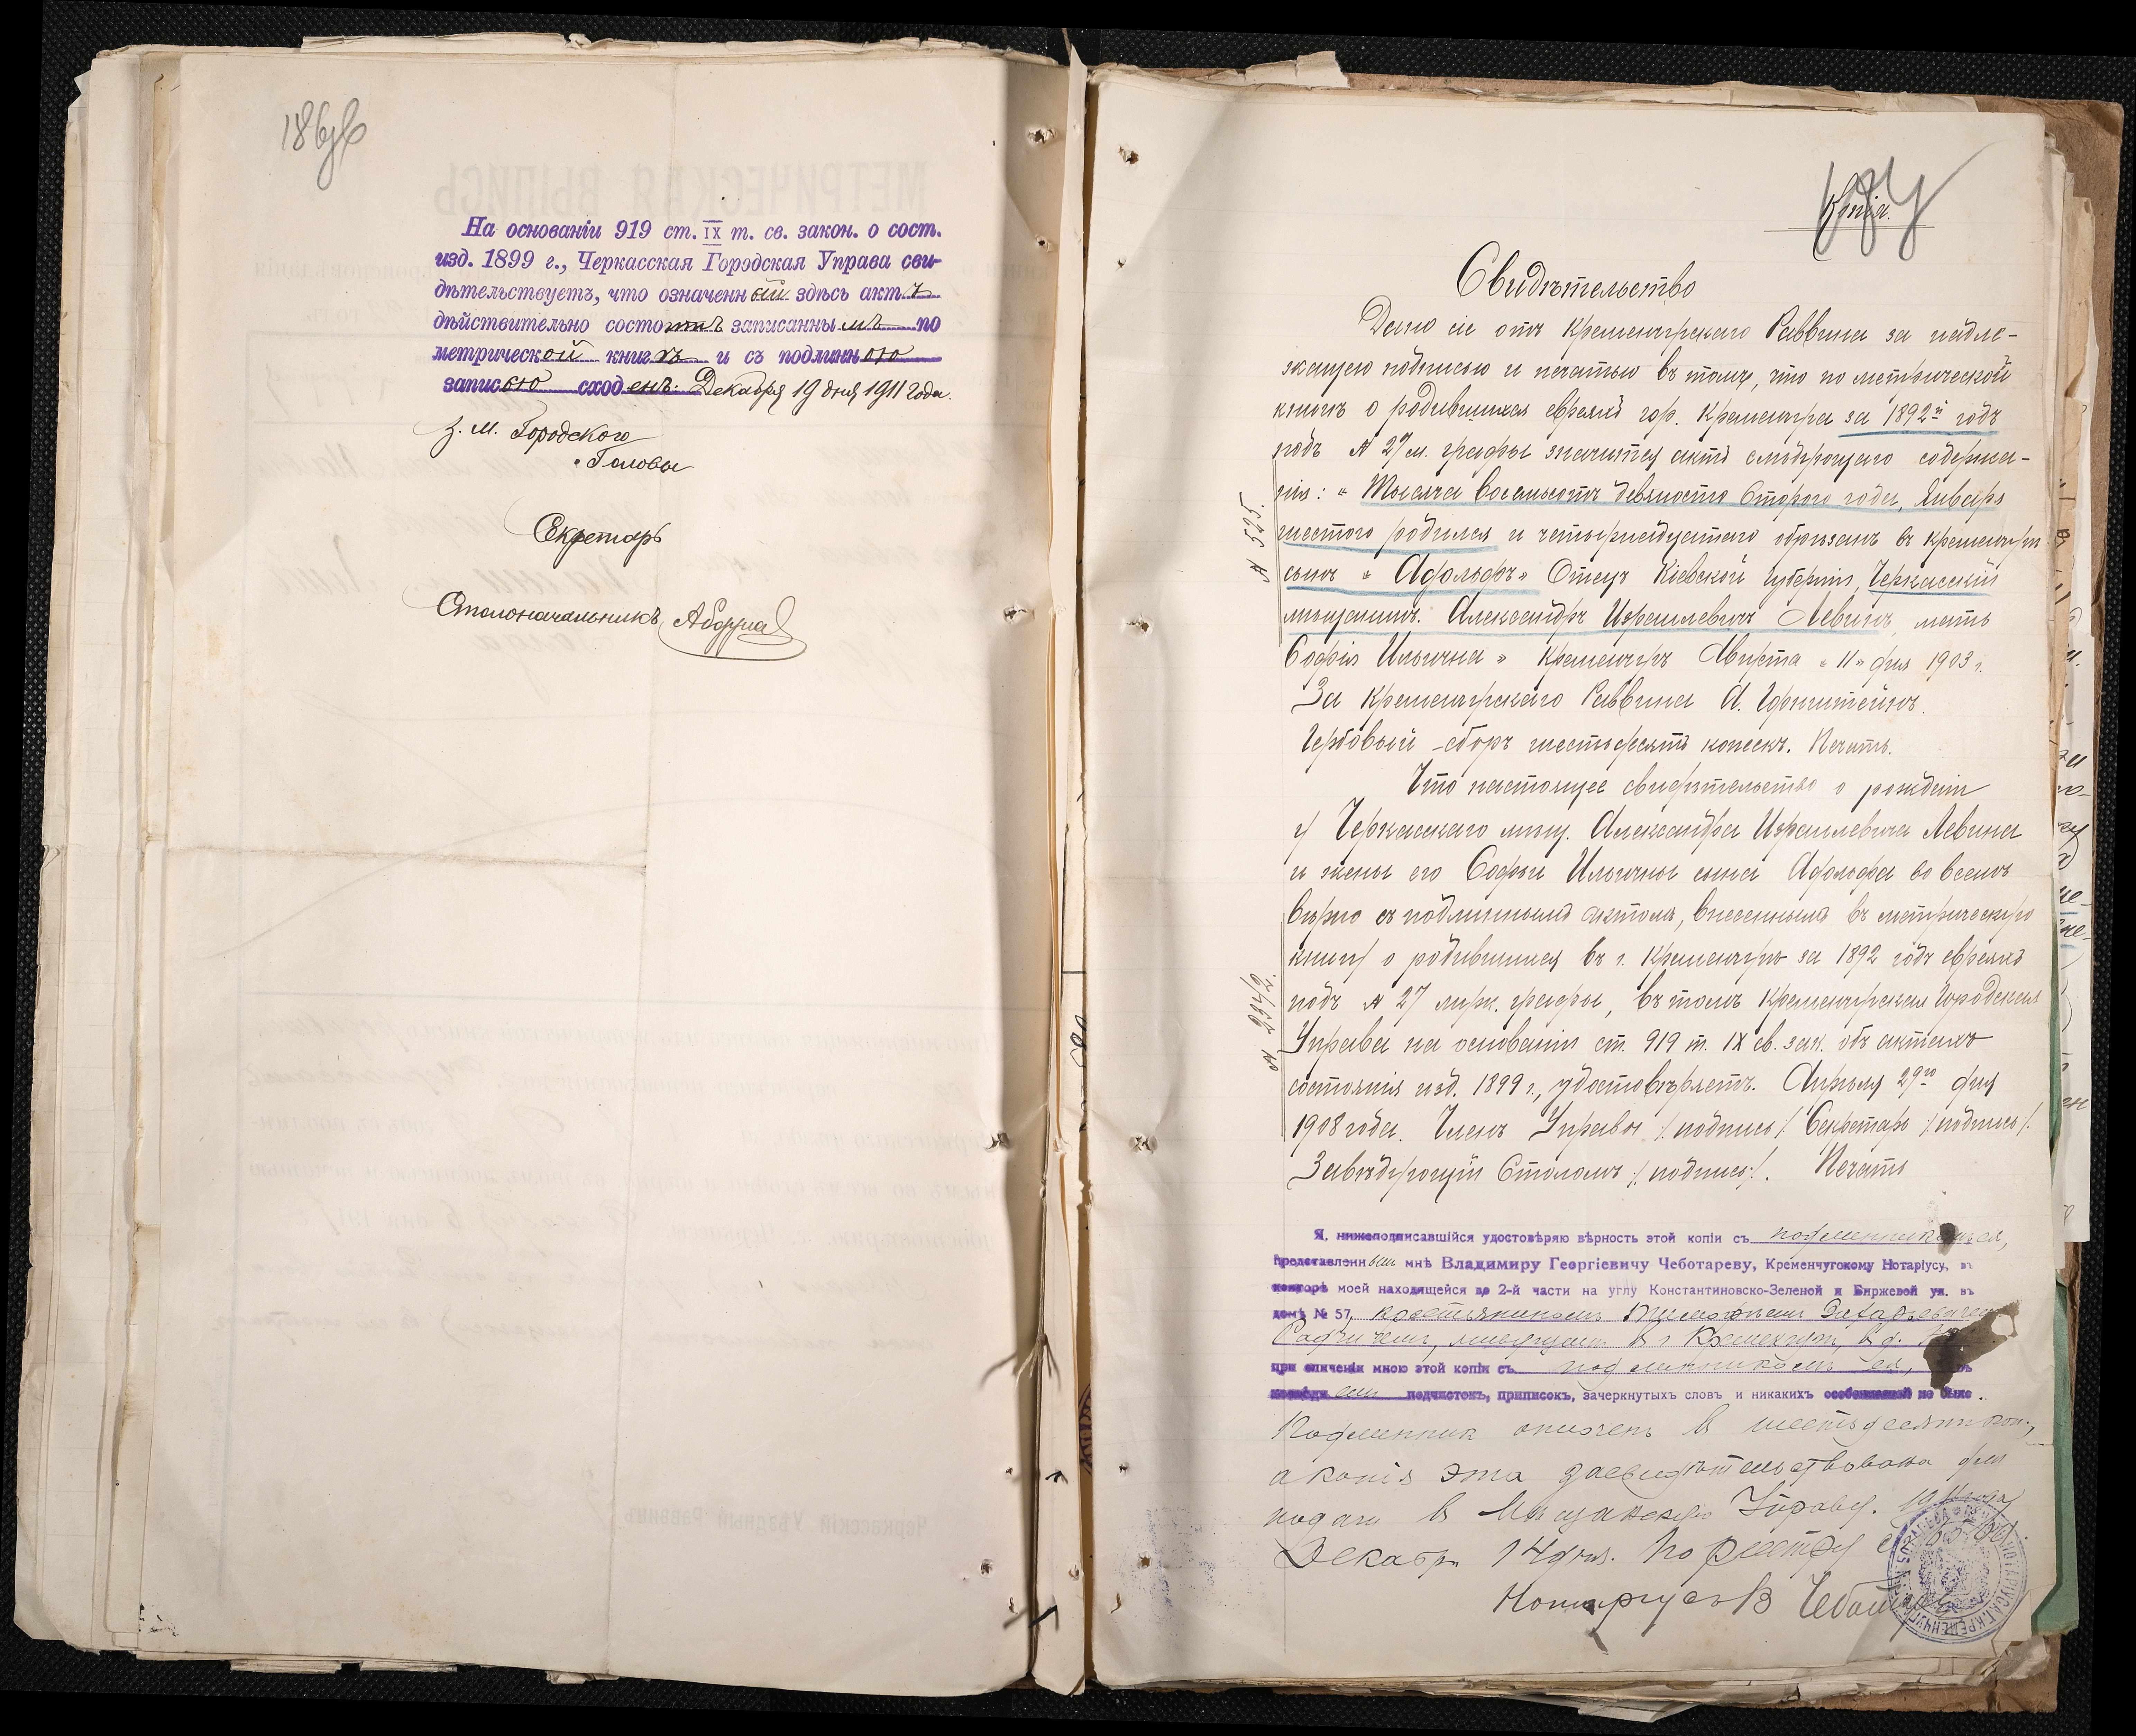 186об
На основаніи 919 ст. IX т. св. закон. о сост.
изд. 1899 г., Черкасская Городская Управа сви-
дѣтельствуетъ, что означенный здѣсь актъ
дѣйствительно состоитъ записаннымъ по
метрической книгѣ и съ подлинною
записью сходенъ: Декабря 19 дня 1911 года.
З. М. Городского
Головы
Секретарь
Столоначальникъ
187
Копія.
Свидѣтельство
Дано сіе отъ Кременчугскаго Раввина за надле-
жащею подписью и печатью въ томъ, что по метрической
книгѣ о родившихся евреяхъ гор. Кременчуга за 1892й годъ
подъ № 27 м. графы значится актъ слѣдующаго содержа-
нія: "Тысяча восемьсотъ девяносто второго года, Января
шестого родился и четырнадцатаго обрѣзанъ въ Кременчугѣ
сынъ "Адольфъ" Отецъ Кіевской губерніи, Черкасскій
мѣщанинъ. Александръ Израилевичъ Левинъ, мать
Софія Ильична" Кременчугъ Августа "11" дня 1903 г.
За Кременчугскаго Раввина А. Горнштейнъ.
Гербовый сборъ шестьдесятъ копеекъ. Печать.
№ 525.
Что настоящее свидѣтельство о рожденіи
у Черкасскаго мѣщ. Александра Израилевича Левина
и жены его Софьи Ильичны сына Адольфа во всемъ
вѣрно съ подлиннымъ актомъ, внесеннымъ въ метрическую
книгу о родившихся въ г. Кременчугѣ за 1892 годъ евреяхъ
подъ № 27 мужс. графы, въ томъ Кременчугская Городская
Управа на основаніи ст. 919 т. IX св. зак. объ актахъ
состоянія изд. 1899 г., удостовѣряетъ. Апрѣля 29го дня
1908 года. Членъ Управы /:подпись:/ Секретарь /:подпись:/.
Завѣдующій Столомъ /:подпись:/. Печать
Я, нижеподписавшійся удостовѣряю вѣрность этой копіи съ подлинникомъ ея,
представленнымъ мнѣ Владимиру Георгіевичу Чеботареву, Кременчугскому Нотаріусу, въ
конторѣ моей находящейся во 2-й части на углу Константиновско-Зеленой и Биржевой ул. въ
домѣ № 57, крестьяниномъ Захарьевичемъ
живущимъ въ г. Кременчугѣ, въ д.
при сличеніи мною этой копіи съ подлинникомъ ея,
подчистокъ, приписокъ, зачеркнутыхъ словъ и никакихъ особенностей не было.
Подлинникъ оплаченъ въ шестьдесятъ коп.,
а копія эта засвидѣтельствована для
подачи въ Мѣщанскую Управу. 1911 года
Декабря 14 дня. По реестру №
Нотаріусъ В Чеботаревъ